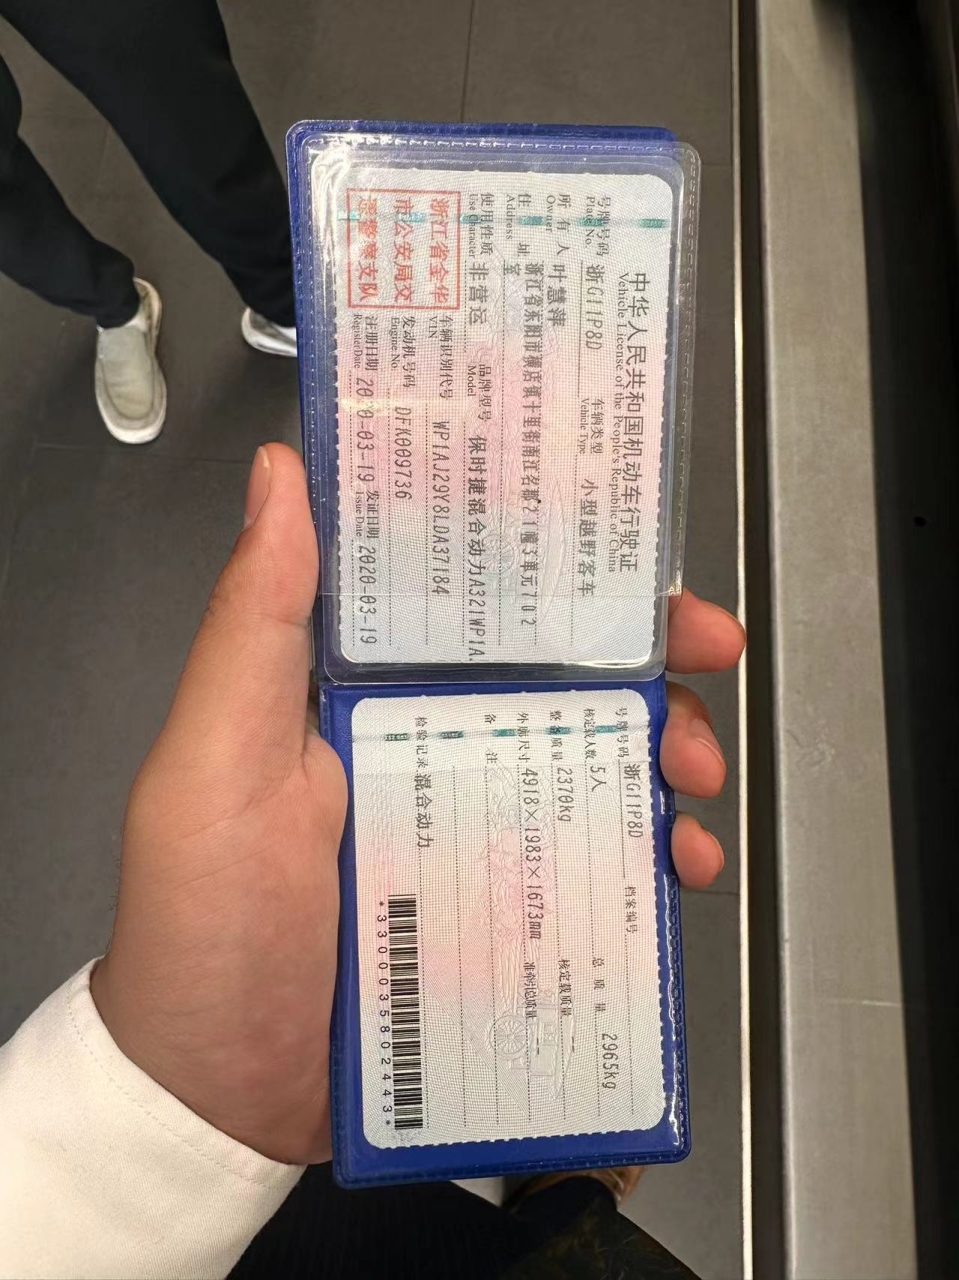 中华人民共和国机动车行驶证
Vehicle License of the People's Republic of China
号牌号码 浙G11P8D 车辆类型 小型越野客车
Plate No. Vehicle Type
所有人 叶慧萍
Owner
住址 浙江省东阳市横店镇十里街南江名郡21幢3单元702
Address 室
使用性质 非营运 品牌型号 保时捷混合动力A321WP1A
Use Character Model
浙江省金华
市公安局交
通警察支队
车辆识别代号 WP1AJ29Y8LDA37184
VIN
发动机号码 DFK009736
Engine No.
注册日期 2020-03-19 发证日期 2020-03-19
Register Date Issue Date
号牌号码 浙G11P8D 档案编号
核定载人数 5人 总质量 2965kg
整备质量 2370kg 核定载质量 --
外廓尺寸 4918×1983×1673mm 准牵引总质量 --
备注
检验记录 混合动力
*3300035802443*